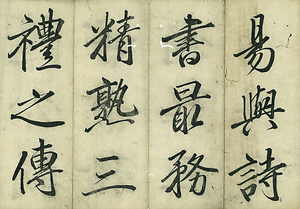 易與詩
書最務
精熟三
禮之傳